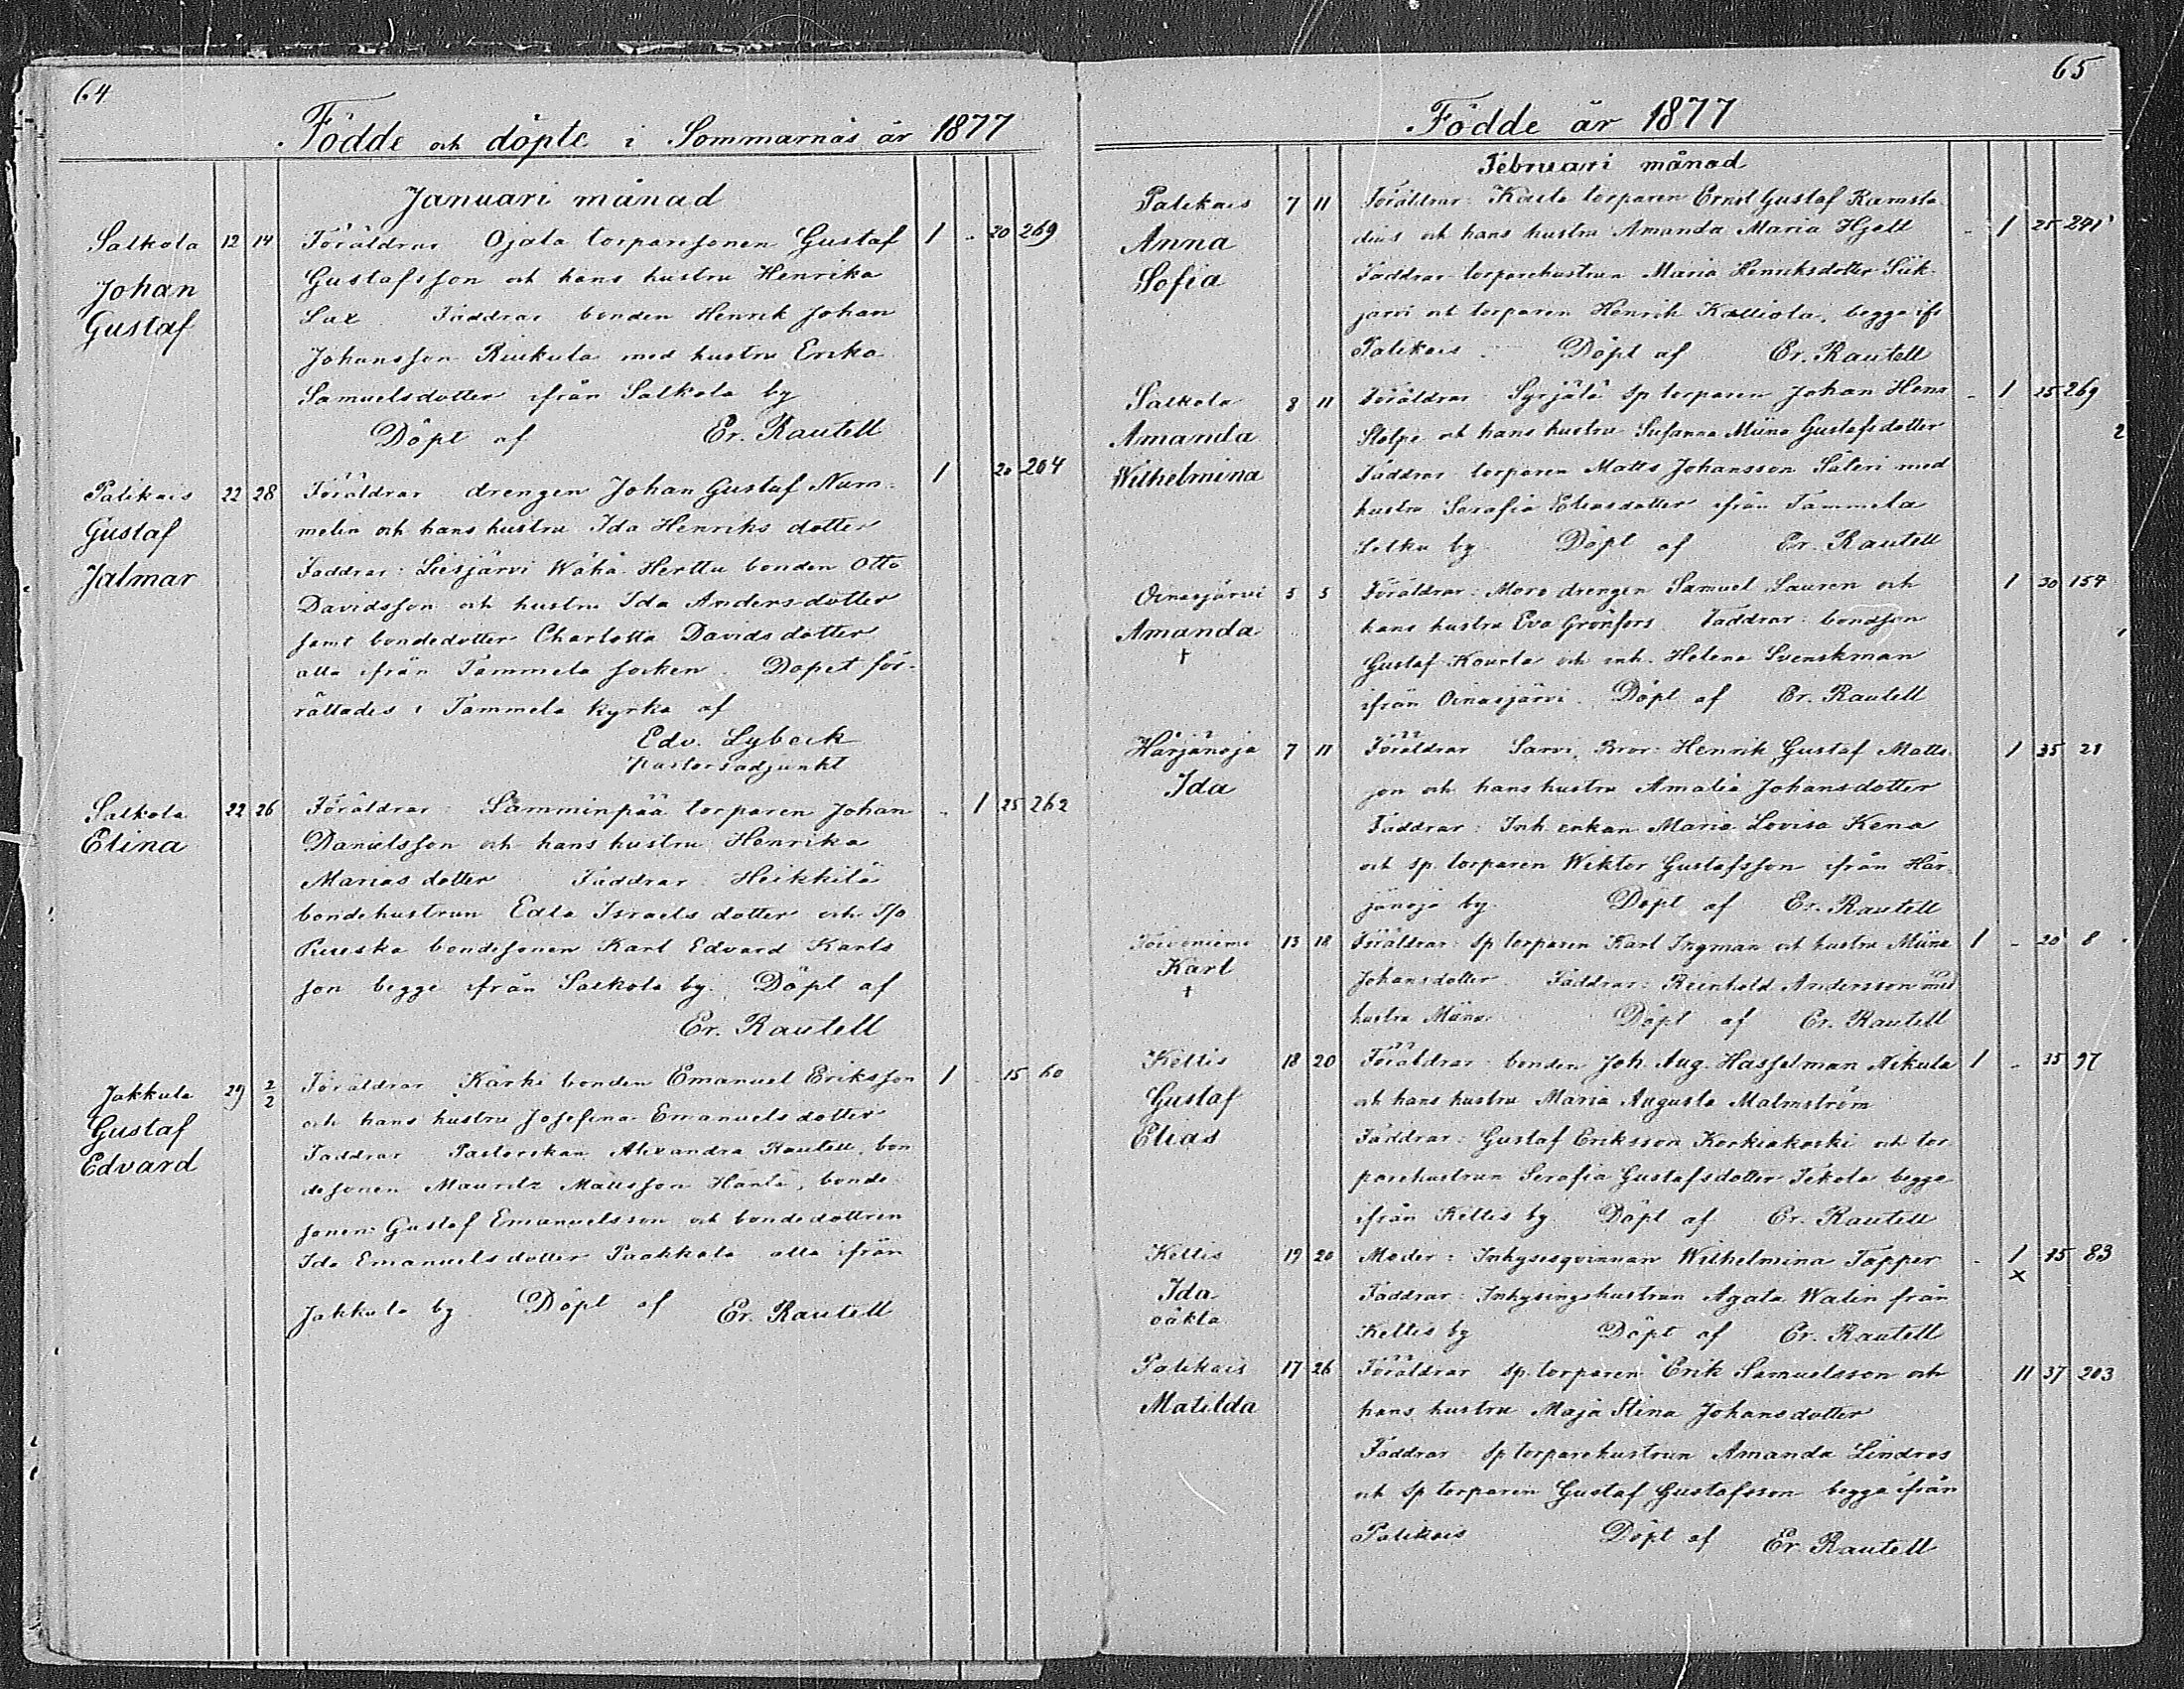 64
Födde och döpte i Sommarnäs år 1877
Januari månad
Salkola 12 14 Föräldrar Ojala torparesonen Gustaf 1 - 20 269
Johan Gustafsson och hans hustru Henrika
Gustaf Sax Faddrar bonden Henrik Johan
Johansson Riukula med hustru Erika
Samuelsdotter ifrån Salkola by
Döpt af Er. Rautell
Palikais 22 28 Föräldrar drengen Johan Gustaf Num- 1 20 204
Gustaf melin och hans hustru Ida Henriks dotter
Jalmar Faddrar: Liesjärvi Wähä Herttu bonden Otto
Davidsson och hustru Ida Andersdotter
samt bondedotter Charlotta Davids dotter
alla ifrån Tammela socken. Dopet för-
rättades i Tammela kyrka af
Edv. Lybeck
pastorsadjunkt
Salkola 22 26 Föräldrar: Lamminpää torparen Johan - 1 25 262
Elina Danielsson och hans hustru Henrika
Mariasdotter Faddrar: Heikkilä
bondehustrun Edla Israels dotter och
bondesonen Karl Edvard Karls
son begge ifrån Salkola by. Döpt af
Er. Rautell
Jakkula 29 2/2 Föräldrar Kärki bonden Emanuel Eriksson 1 - 15 60
Gustaf och hans hustru Josefina Emanuels dotter
Edvard Faddrar Pastorskan Alexandra Rautell, bon
desonen Mauritz Mattsson Häntä, bonde
sonen Gustaf Emanuelsson och bondedottren
Ida Emanuels dotter Paakkola alla ifrån
Jakkula by. Döpt af Er. Rautell
65
Födde år 1877
Februari månad
Palikais 7 11 Föräldrar: Kouta torparen Ernst Gustaf Ramsta
Anna dius och hans hustru Amanda Maria Hjelt - 1 25 241
Sofia Faddrar torparehustrun Maria Henriksdotter Sük-
järvi och torparen Henrik Kalliola, begge ifr
Palikais. Döpt af Er. Rautell
Salkola 8 11 Föräldrar Syrjälä sp torparen Johan Henr - 1 25 269
Amanda Stolpe och hans hustru Susanna Miina Gustafsdotter
Wilhelmina Faddrar torparen Matts Johansson Saleri med
hustru Serafia Eliasdotter ifrån Tammela
Letku by Döpt af Er. Rautell
Oinasjärvi 5 5 Föräldrar: Moro drengen Samuel Lauren och 1 30 154
Amanda hans hustru Eva Grönfors Faddrar: bondson
† Gustaf Kourla och inh. Helena Svenskman
ifrån Oinasjärvi. Döpt af Er. Rautell
Härjänoja 7 11 Föräldrar Sarvi, Bror: Henrik Gustaf Matts 1 35 21
Ida son och hans hustru Amalia Johansdotter
Faddrar: Inh enkan Maria Lovisa Kena
och sp. torparen Wiktor Gustafsson ifrån Här-
jänoja by Döpt af Er. Rautell
Toivoniemi 13 18 Föräldrar: Sp torparen Karl Ingman och hustru Miina 1 - 20 8
Karl Johansdotter. Faddrar: Reinhold Andersson med
† hustru Miina. Döpt af Er. Rautell
Keltis 18 20 Föräldrar: bonden Joh. Aug. Hasselman Nikula 1 - 35 97
Gustaf och hans hustru Maria Augusta Malmström
Elias Faddrar: Gustaf Eriksson Korkiakoski och tor
parehustrun Serafia Gustafsdotter Iskola begge
ifrån Keltis by Döpt af Er. Rautell
Keltis 19 20 Moder: Inhysesqvinnan Wilhelmina Tapper - 1 35 83
Ida Faddrar: Inhysingshustrun Agata Walen från ×
oäkta Keltis by Döpt af Er. Rautell
Palikais 17 26 Föräldrar sp. torparen Erik Samuelsson och 11 37 203
Matilda hans hustru Maja Stina Johansdotter
Faddrar: Sp torparehustrun Amanda Lindros
och sp torparen Gustaf Gustafsson begge ifrån
Palikais Döpt af Er. Rautell